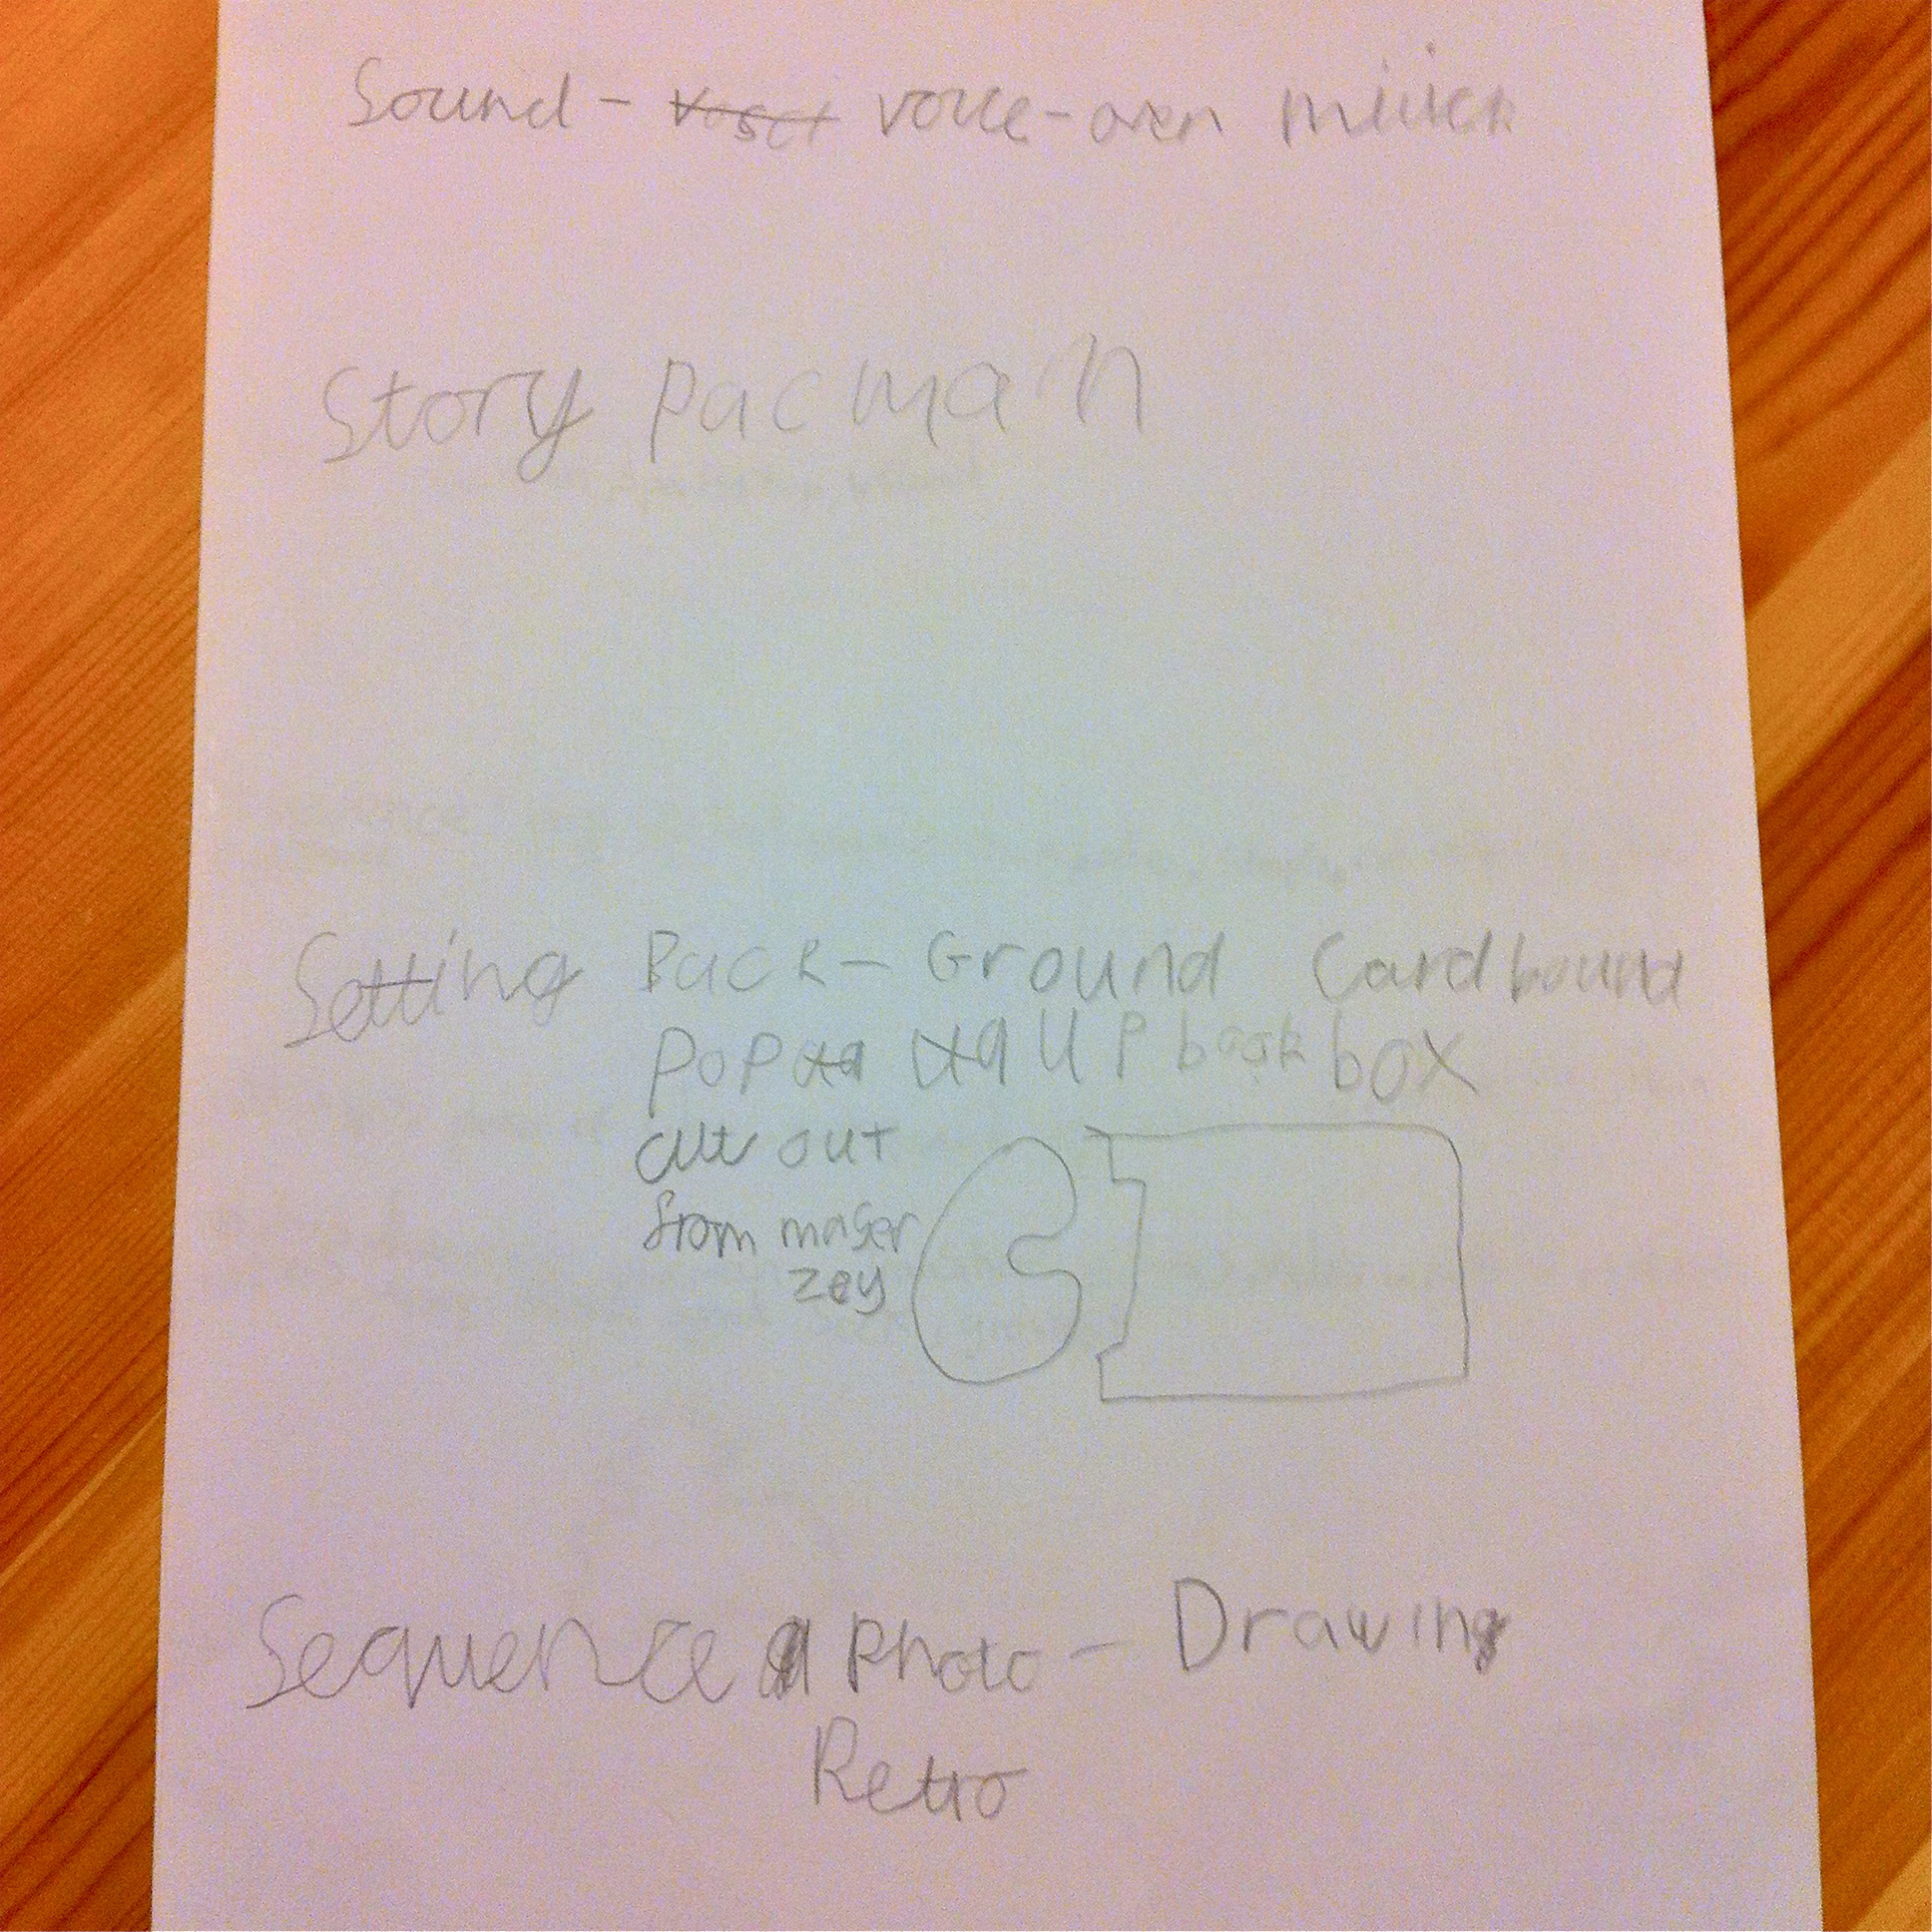 Sound - voice-over
Story pacman
Setting Back-Ground Cardbound
Pop up book box
cut out
from maser
zey
Sequence Photo - Drawing
Retro